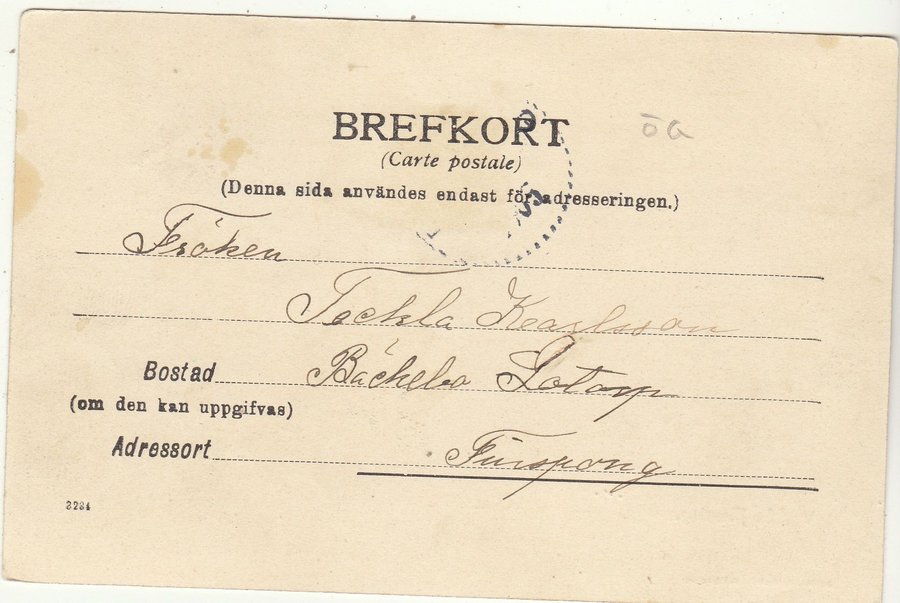 BREFKORT
öa
(Carte postale)
(Denna sida användes endast för adresseringen.)
Fröken
Teckla Kearlsson
Bostad Bäckebo Gotorp
(om den kan uppgifvas)
Adressort Finspong
3284